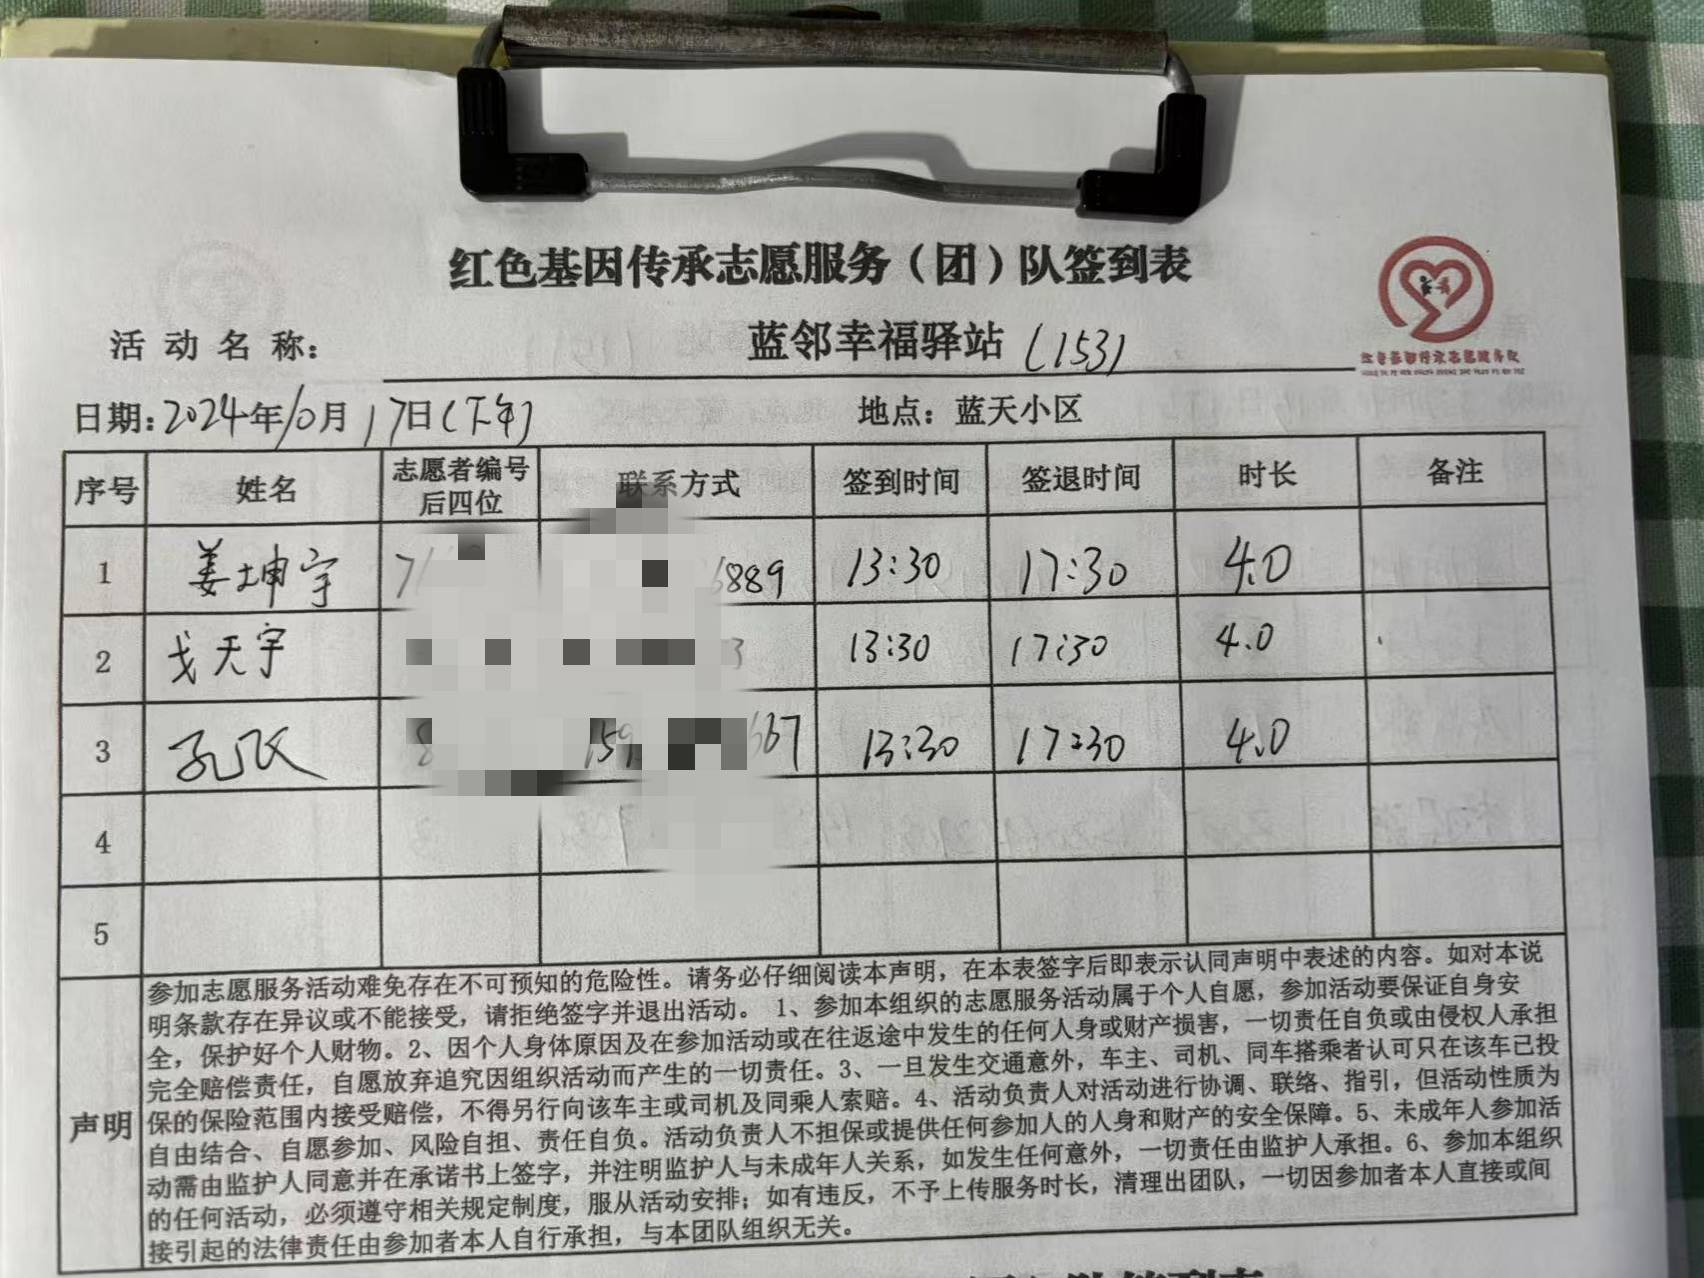 红色基因传承志愿服务（团）队签到表
活动名称： 蓝邻幸福驿站 (153)
日期：2024年10月17日(下午) 地点：蓝天小区
序号 姓名 志愿者编号后四位 联系方式 签到时间 签退时间 时长 备注
1 姜坤宇 7 6889 13:30 17:30 4.0
2 戈天宇 3 13:30 17:30 4.0
3 孔 8 159 667 13:30 17:30 4.0
4
5
声明
参加志愿服务活动难免存在不可预知的危险性。请务必仔细阅读本声明，在本表签字后即表示认同声明中表述的内容。如对本说
明条款存在异议或不能接受，请拒绝签字并退出活动。 1、参加本组织的志愿服务活动属于个人自愿，参加活动要保证自身安
全，保护好个人财物。2、因个人身体原因及在参加活动或在往返途中发生的任何人身或财产损害，一切责任自负或由侵权人承担
完全赔偿责任，自愿放弃追究因组织活动而产生的一切责任。3、一旦发生交通意外，车主、司机、同车搭乘者认可只在该车已投
保的保险范围内接受赔偿，不得另行向该车主或司机及同乘人索赔。4、活动负责人对活动进行协调、联络、指引，但活动性质为
自由结合、自愿参加、风险自担、责任自负。活动负责人不担保或提供任何参加人的人身和财产的安全保障。5、未成年人参加活
动需由监护人同意并在承诺书上签字，并注明监护人与未成年人关系，如发生任何意外，一切责任由监护人承担。6、参加本组织
的任何活动，必须遵守相关规定制度，服从活动安排；如有违反，不予上传服务时长，清理出团队，一切因参加者本人直接或间
接引起的法律责任由参加者本人自行承担，与本团队组织无关。